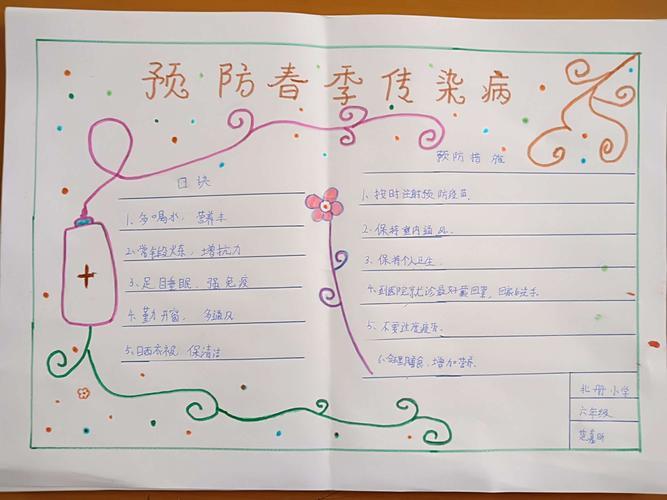 预防春季传染病
口诀
1、多喝水，营养丰
2、常锻炼，增抗力
3、足睡眠，强免疫
4、勤开窗，多通风
5、晒衣被，保清洁
预防措施
1、按时注射预防疫苗
2、保持室内通风.
3、保持个人卫生.
4、到医院就诊最好戴口罩，回家后洗手
5、不要过度疲劳.
6、合理膳食，增加营养.
扎册小学
六年级